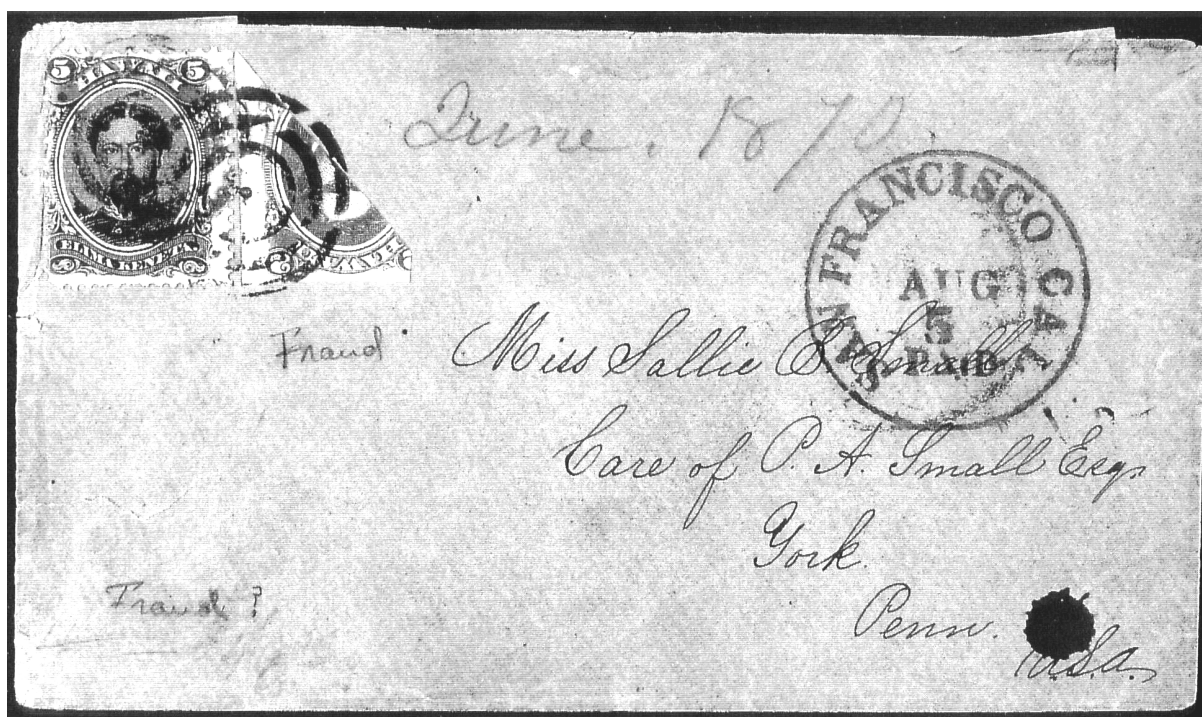 5 HAWAII 5
ELIMA KENETA.
June. 1870
SAN FRANCISCO CAL
AUG
5
PAID
Fraud
Miss Sallie Small
Care of P. A. Small Esqr
York.
Penn.
U.S.a.
Fraud ?